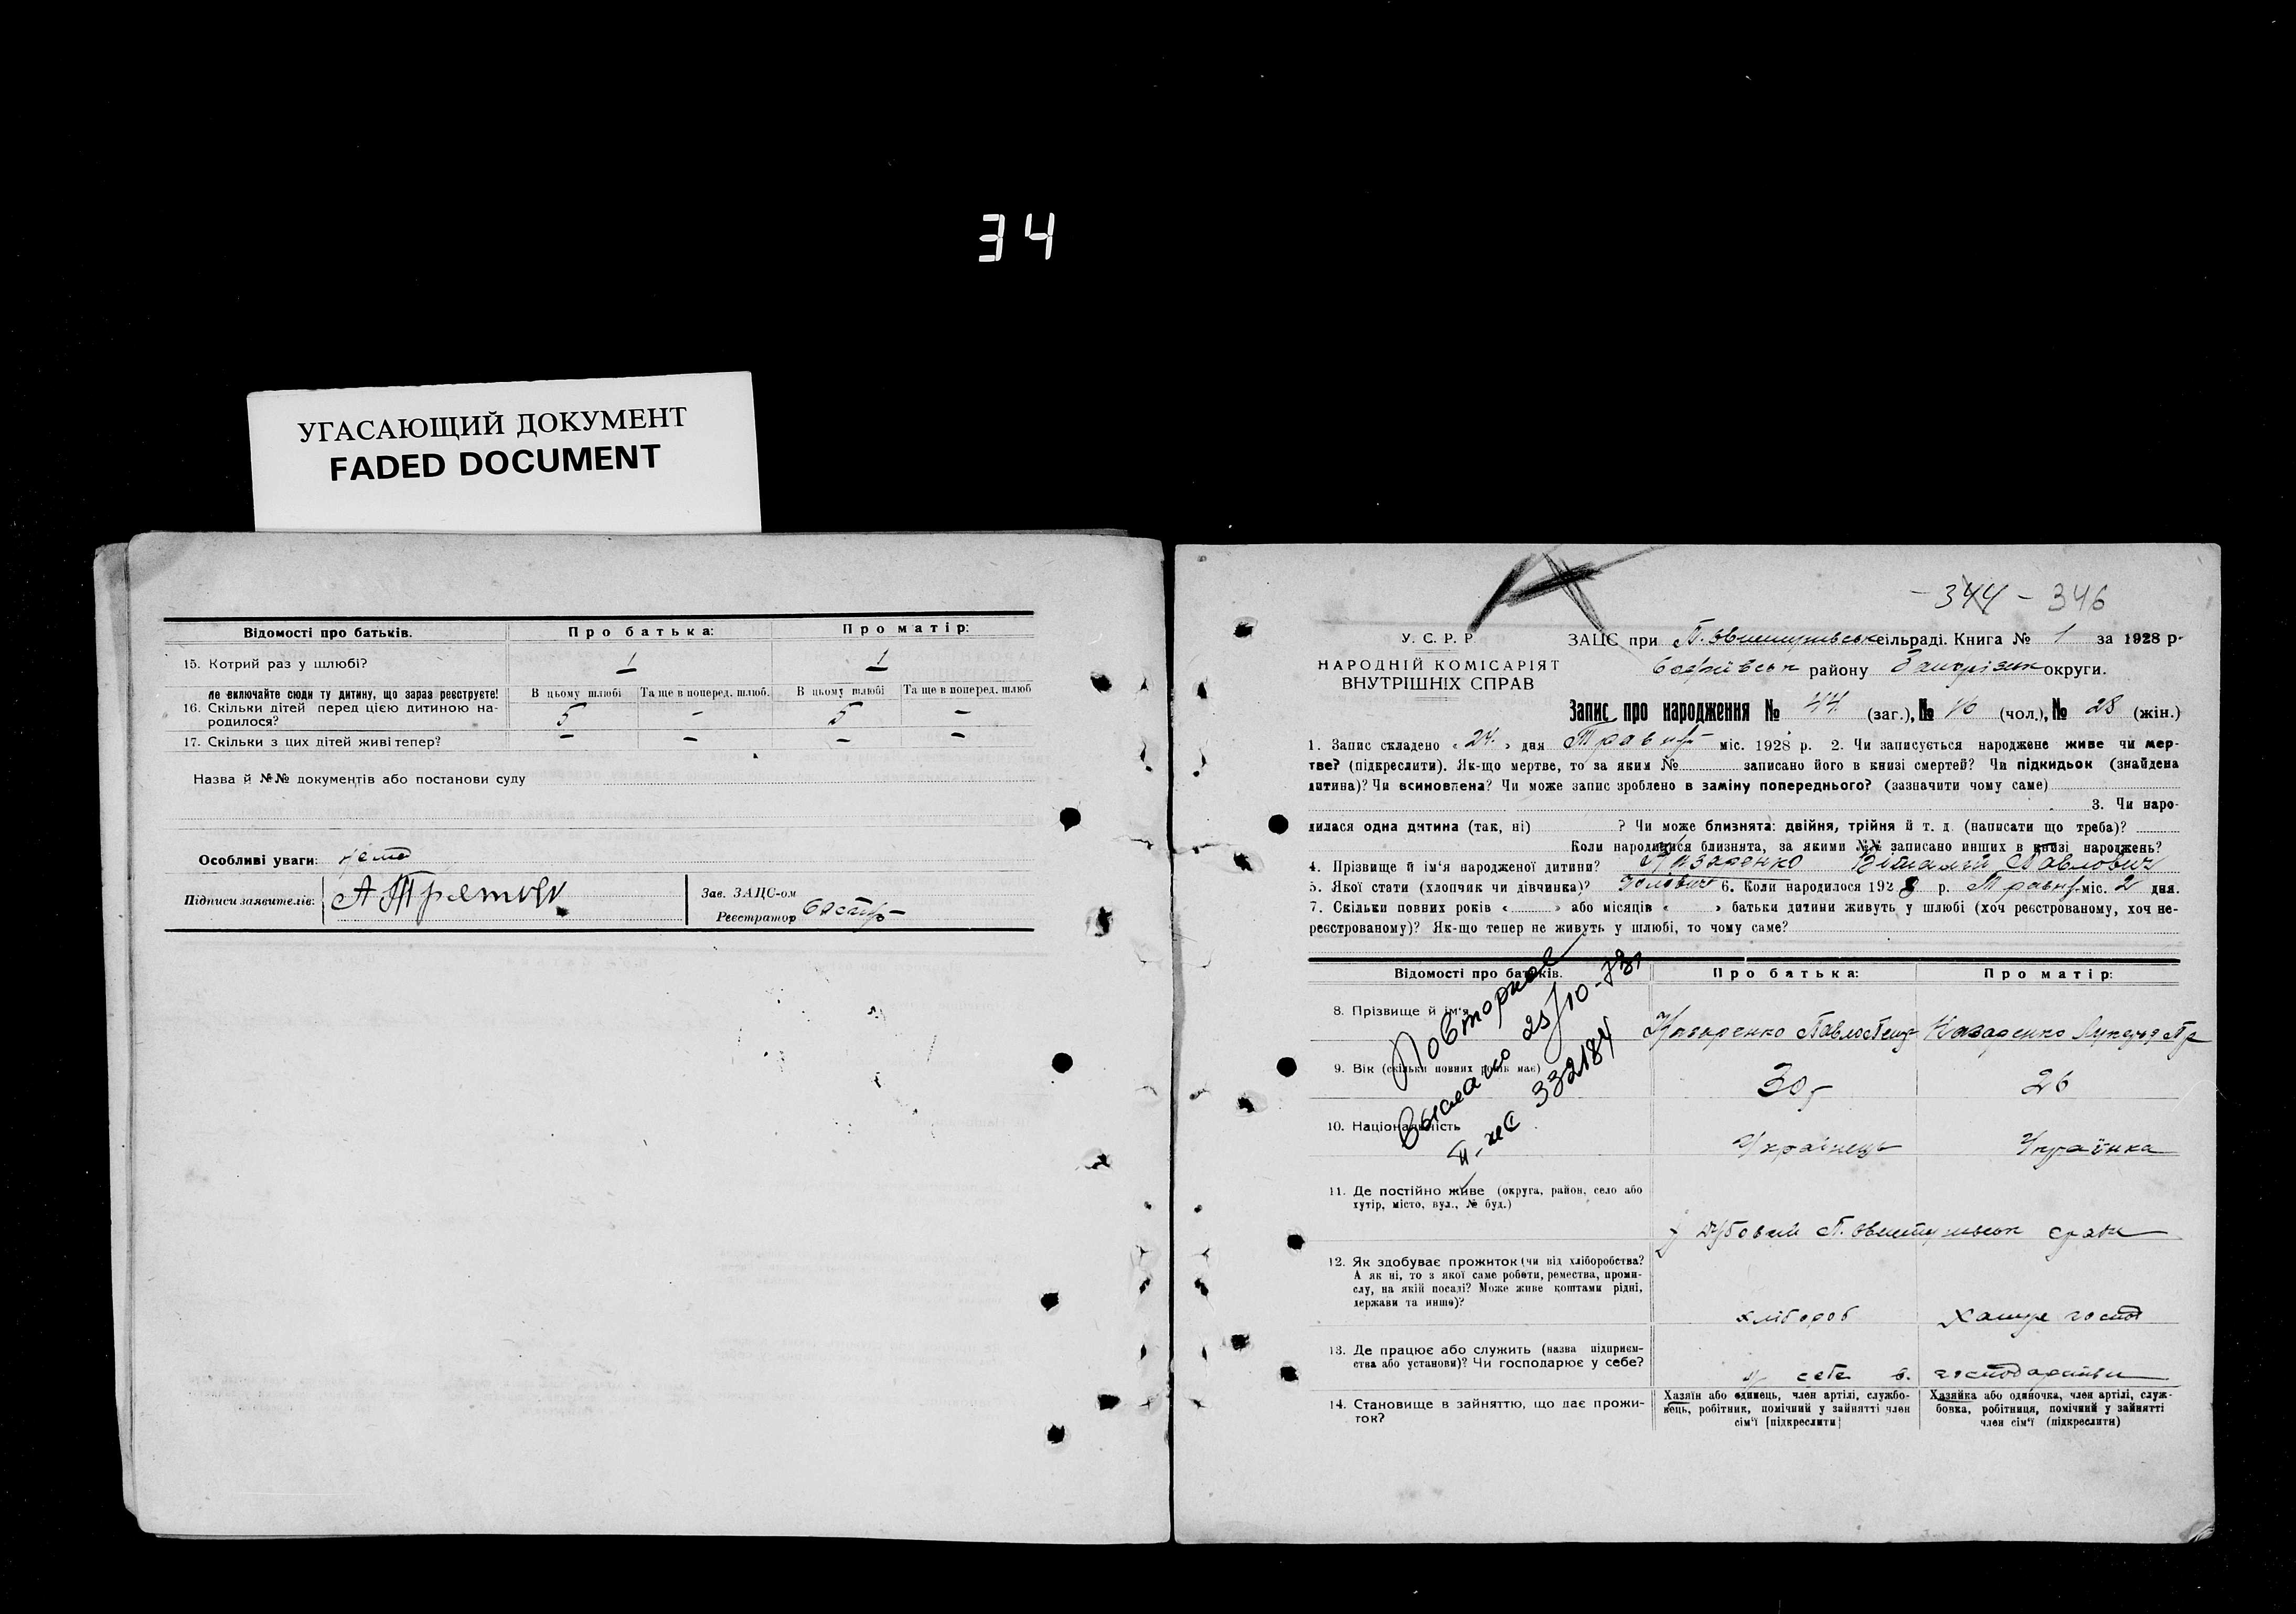 34
УГАСАЮЩИЙ ДОКУМЕНТ
FADED DOCUMENT
Відомості про батьків. Про батька: Про матір:
15. Котрий раз у шлюбі? 1 1
не включайте сюди ту дитину, що зараз реєструєте! В цьому шлюбі Та ще в поперед. шлюб. В цьому шлюбі Та ще в поперед. шлюб
16. Скільки дітей перед цією дитиною на-
родилося? 5 - 5 -
17. Скільки з цих дітей живі тепер? - - - -
Назва й №№ документів або постанови суду
Особливі уваги:
Підписи заявителів:
Зав. ЗАЦС-ом
Реєстратор
- 344 - 346
У. С. Р. Р.
НАРОДНІЙ КОМІСАРІЯТ
ВНУТРІШНІХ СПРАВ
ЗАЦС при сільраді. Книга № 1 за 1928 р.
району округи.
Запис про народження № 44 (заг.), № 16 (чол.), № 28 (жін.)
1. Запис складено « 24 » дня Травня міс. 1928 р. 2. Чи записується народжене живе чи мер-
тве? (підкреслити). Як-що мертве, то за яким № записано його в книзі смертей? Чи підкидьок (знайдена
дитина)? Чи всиновлена? Чи може запис зроблено в заміну попереднього? (зазначити чому саме)
3. Чи наро-
дилася одна дитина (так, ні) ? Чи може близнята: двійня, трійня й т. д. (написати що треба)?
Коли народилися близнята, за якими №№ записано инших в книзі народжень?
4. Прізвище й ім'я народженої дитини? Назаренко Віталій Павлович
5. Якої стати (хлопчик чи дівчинка)? 6. Коли народилося 1928 р. Травня міс. 2 дня.
7. Скільки повних років « » або місяців « » батьки дитини живуть у шлюбі (хоч реєстрованому, хоч не-
реєстрованому)? Як-що тепер не живуть у шлюбі, то чому саме?
Відомості про батьків. Про батька: Про матір:
8. Прізвище й ім'я Назаренко Павло Назаренко
9. Вік (скільки повних років має) 30 26
10. Національність Українець Українка
11. Де постійно живе (округа, район, село або
хутір, місто, вул., № буд.)
12. Як здобуває прожиток (чи від хліборобства?
А як ні, то з якої саме роботи, ремества, проми-
слу, на якій посаді? Може живе коштами рідні,
держави та инше)? хлібороб
13. Де працює або служить (назва підприєм-
ства або установи)? Чи господарює у себе? у себе в господарстві
14. Становище в зайняттю, що дає прожи-
ток?
Хазяїн або одинець, член артілі, службо-
вець, робітник, помічний у зайнятті член
сім'ї [підкреслити]
Хазяйка або одиночка, член артілі, служ-
бовка, робітниця, помічний у зайнятті
член сім'ї (підкреслити)
Повторное
Выслано 25/10-73г
332184